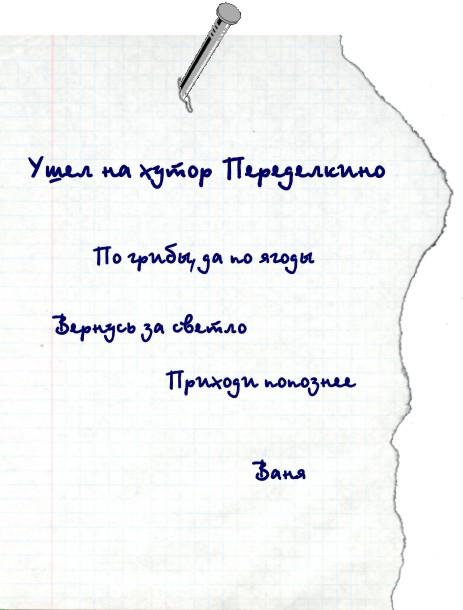 Ушел на хутор Переделкино
По грибы, да по ягоды
Вернусь за светло
Приходи попознее
Ваня